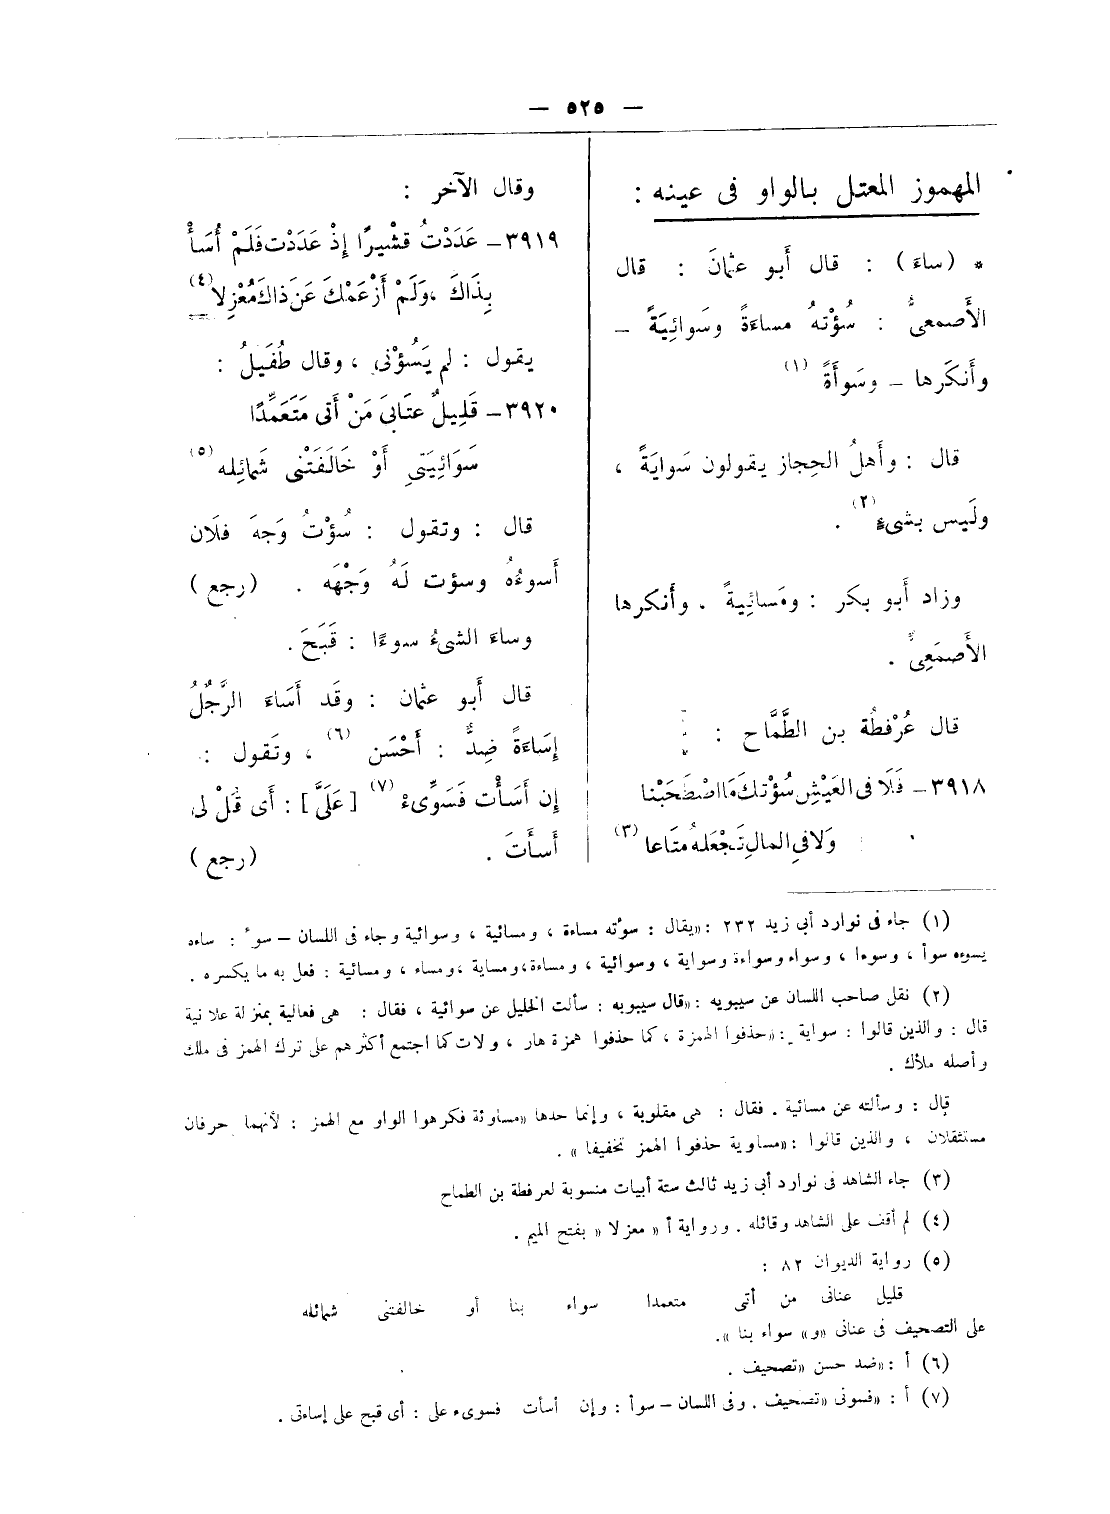 — ٥٢٥ —
المهموز المعتل بالواو فى عينه :
* (ساءَ) : قال أَبو عثمانَ : قال
الأَصمعىُّ : سُؤْتهُ مساءَةً وسَوائِيَةً –
وأَنكَرها – وسَوأَةً (١)
قال : وأَهلُ الحِجاز يقولون سَوايَةً ،
ولَيس بشىءٍ (٢) .
وزاد أَبو بكر : ومَسائِيةً . وأَنكرها
الأَصمَعِىُّ .
قال عُرْفطَة بن الطَّمَّاح :
٣٩١٨ – فَلَا فى العَيْشِ سُؤْتكَ مَا اصْطَحَبْنا
وَلا فى المالِ تَجْعَلهُ مَتَاعا (٣)
وقال الآخر :
٣٩١٩ – عَدَدْتُ قُشَيرًا إِذْ عَدَدْت فَلَمْ أُسَأْ
بِذَاكَ ، وَلَمْ أَزْعَمْكَ عَن ذاكَ مُعْزِلا (٤)
يقول : لم يَسُؤْنى ، وقال طُفَيلُ :
٣٩٢٠ – قَلِيلٌ عتَابىَ مَنْ أَتى مَتَعَمِّدًا
سَوَائِيَتىِ أَوْ خَالَفَتْنى شَمائِله (٥)
قال : وتقول : سُؤْتُ وَجهَ فلَان
أَسوءُهُ وسؤت لَهُ وَجْهَه . (رجع)
وساءَ الشىءُ سوءًا : قَبَحَ .
قال أَبو عثمان : وقَد أَسَاءَ الرَّجُلُ
إِسَاءَةً ضِدُّ : أَحْسَن (٦) ، وتَقول :
إِن أَسَأْت فَسَوِّىءْ (٧) [عَلَىَّ] : أَى قُلْ لى
أَسأَتَ . (رجع)
(١) جاء فى نوارد أبى زيد ٢٣٢ : «يقال : سؤته مساءة ، ومسائية ، وسوائية وجاء فى اللسان – سوء : ساءه
يسوءه سوأ ، وسوءا ، وسواء وسواءة وسواية ، وسوائية ، ومساءة، ومساية ، ومساء ، ومسائية : فعل به ما يكسره .
(٢) نقل صاحب اللسان عن سيبويه : «قال سيبويه : سألت الخليل عن سوائية ، فقال : هى فعالية بمنزلة علانية
قال : والذين قالوا : سواية : «حذفوا الهمزة ، كما حذفوا همزة هار ، ولات كما اجتمع أكثرهم على ترك الهمز فى ملك
وأصله ملأك .
قال : وسألته عن مسائية . فقال : هى مقلوبة ، وإنما حدها «مساوئة فكرهوا الواو مع الهمز : لأنهما حرفان
مستثقلان ، والذين قالوا : «مساوية حذفوا الهمز تخفيفا » .
(٣) جاء الشاهد فى نوارد أبى زيد ثالث ستة أبيات منسوبة لعرفطة بن الطماح
(٤) لم أقف على الشاهد وقائله . ورواية أ « معزلا » بفتح الميم .
(٥) رواية الديوان ٨٢ :
قليل عنانى من أتى متعمدا سواء بنا أو خالفتنى شمائله
على التصحيف فى عنانى «و» سواء بنا » .
(٦) أ : «ضد حسن «تصحيف .
(٧) أ : «فسونى «تصحيف . وفى اللسان – سوأ : وإن أسأت فسوىء على : أى قبح على إساءتى .